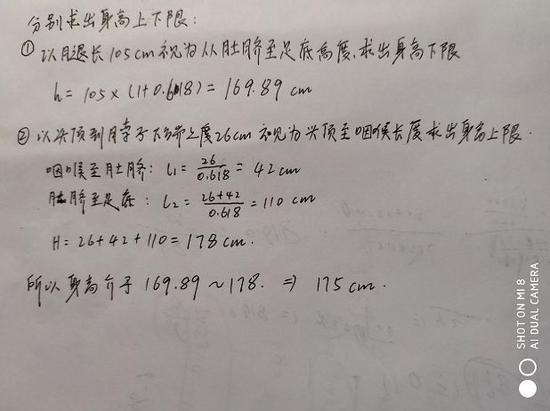 分别求出身高上下限:
① 以腿长105cm视为从肚脐至足底高度,求出身高下限
h = 105 × (1+0.618) = 169.89 cm
② 以头顶到脖子下端长度26cm视为头顶至咽喉长度求出身高上限.
咽喉至肚脐: l₁ = 26/0.618 = 42cm
肚脐至足底: l₂ = (26+42)/0.618 = 110 cm
H = 26+42+110 = 178 cm.
所以身高介于 169.89 ~ 178. ⇒ 175 cm.
SHOT ON MI 8
AI DUAL CAMERA